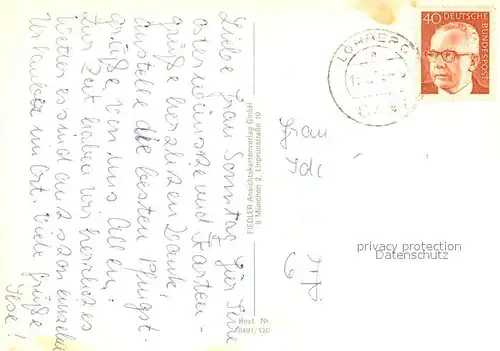 Liebe Frau Sonntag, für Ihre
Osterwünsche und Karten-
grüße herzlichen Dank,
Anstelle die besten Pfingst-
grüße, von uns Allen.
Zur Zeit haben wir herrliches
Wetter es sind auch schon
Urlauber im Ort. Viele Grüße
Ilse!
FIEDLER Ansichtskartenverlag GmbH
8 München 2, Linprunstraße 10
Best. Nr.
8491/120
40 DEUTSCHE
BUNDESPOST
LOHRER
Frau
privacy protection
Datenschutz